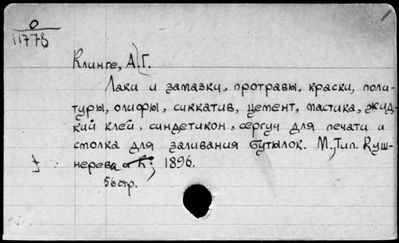 0
11773
Клинге, А.Г.
Лаки и замазки, протравы, краски, поли-
туры, олифы, сиккатив, цемент, мастика, жид-
кий клей, синдетикон, сергуч для печати и
смолка для заливания бутылок. М., Тип. Куш-
нерева и К°, 1896.
56 стр.